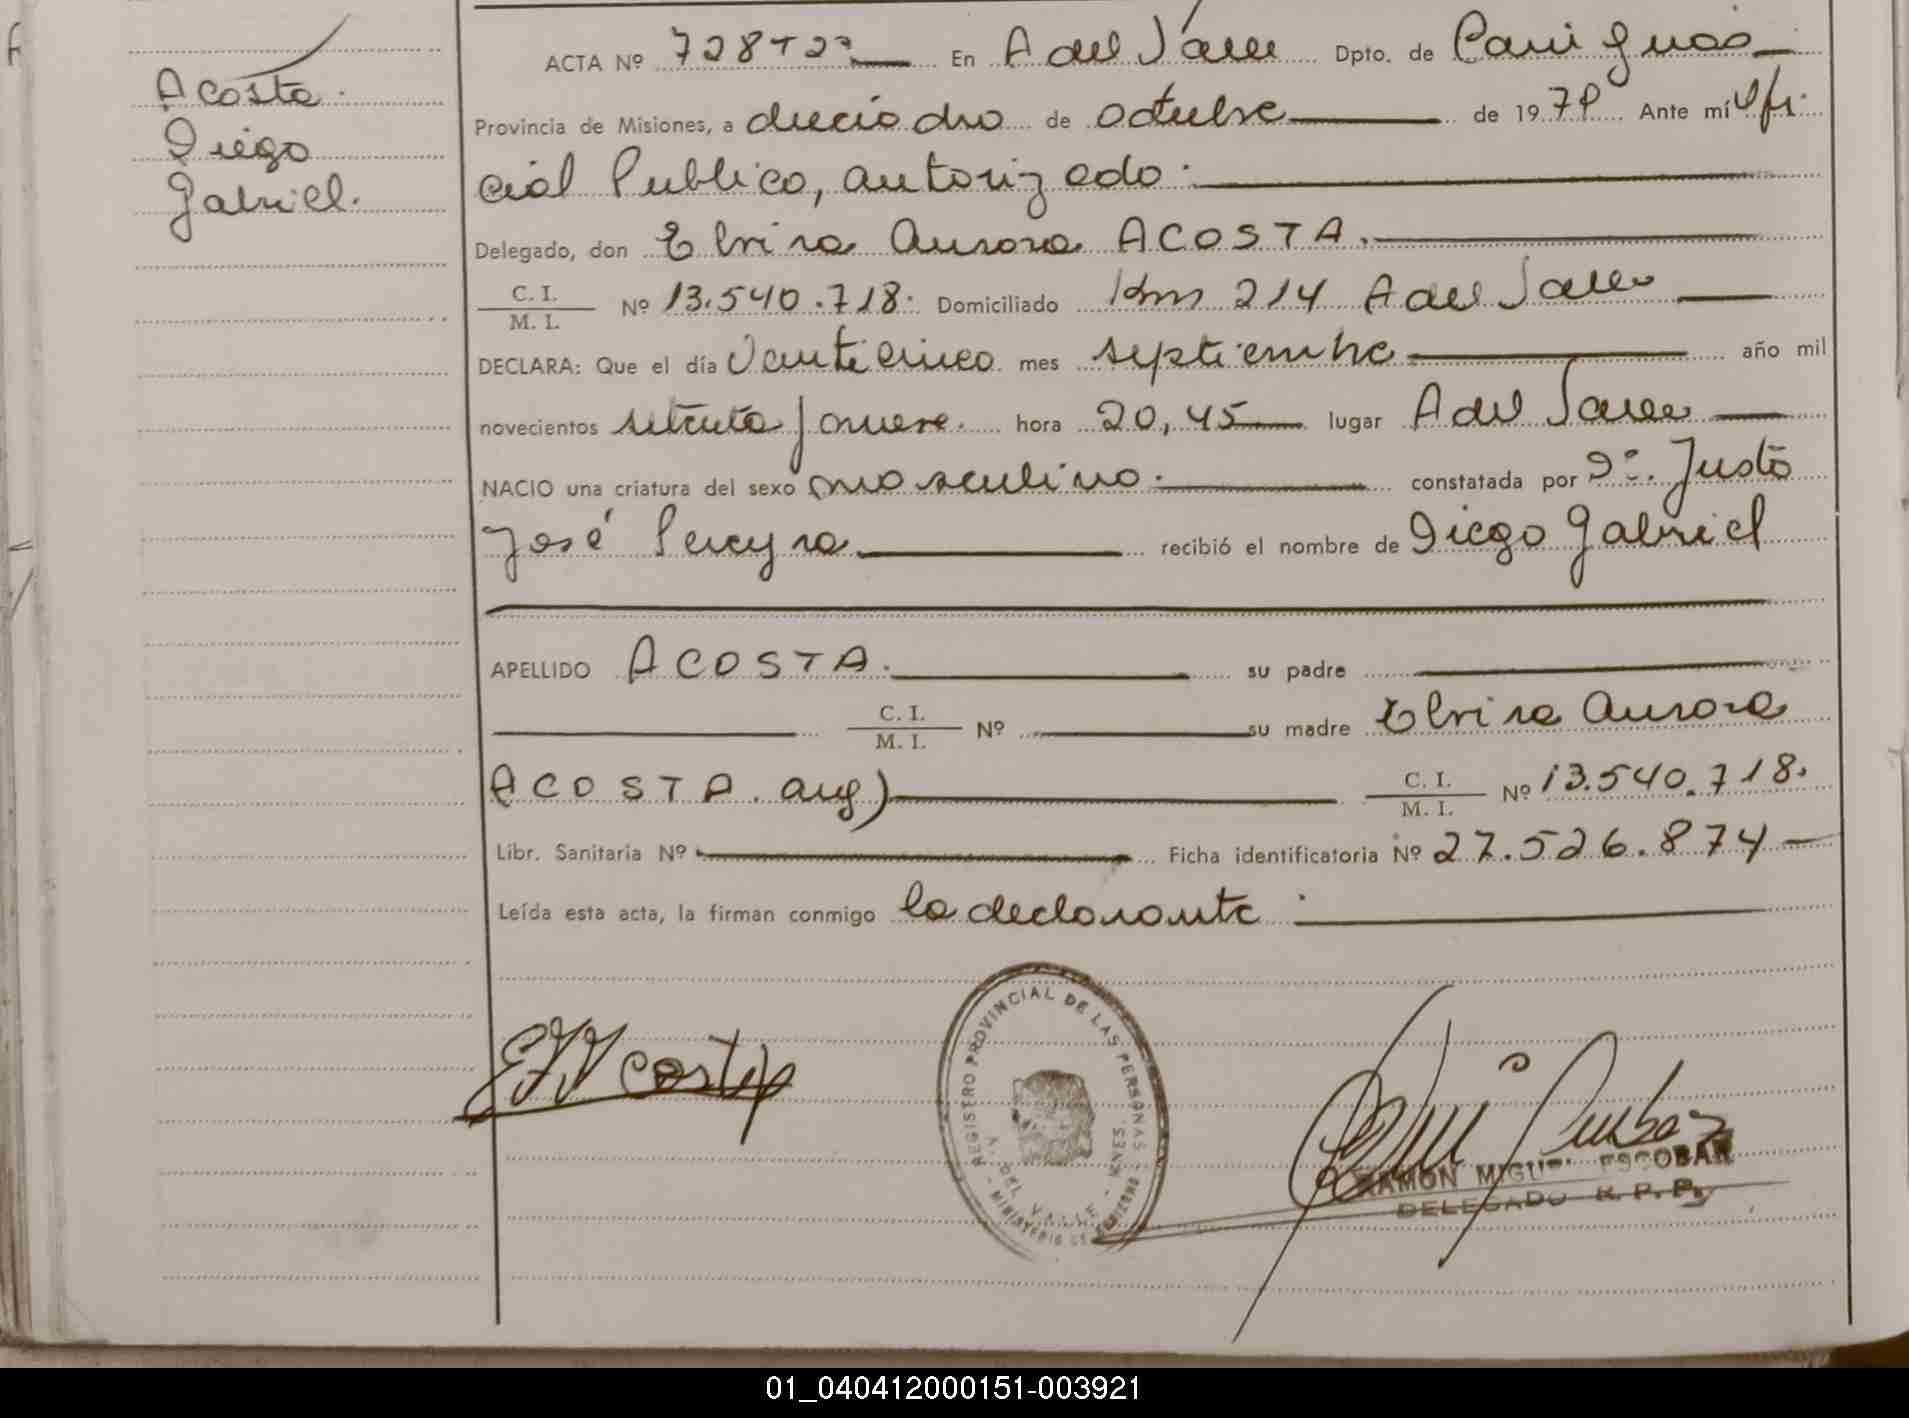 Acosta
Diego
Gabriel.
ACTA Nº 728 Tº 2º En A del Valle Dpto. de Cainguás
Provincia de Misiones, a dieciocho de octubre de 1979 Ante mí Ofi-
cial Publico, autorizado.
Delegado, don Elvira Aurora ACOSTA.
C. I.
M. I. Nº 13.540.718. Domiciliado Km 214 A del Valle
DECLARA: Que el día Veinticinco mes septiembre año mil
novecientos setenta y nueve. hora 20,45 lugar A del Valle
NACIO una criatura del sexo masculino. constatada por Dº. Justo
José Pereyra recibió el nombre de Diego Gabriel
APELLIDO ACOSTA. su padre
C. I.
M. I. Nº su madre Elvira Aurora
ACOSTA. arg) C. I.
M. I. Nº 13.540.718.
Libr. Sanitaria Nº Ficha identificatoria Nº 27.526.874
Leída esta acta, la firman conmigo la declarante
REGISTRO PROVINCIAL DE LAS PERSONAS
A. DEL VALLE - MNES.
RAMON MIGUEL ESCOBAR
DELEGADO R. P. P.
01_040412000151-003921